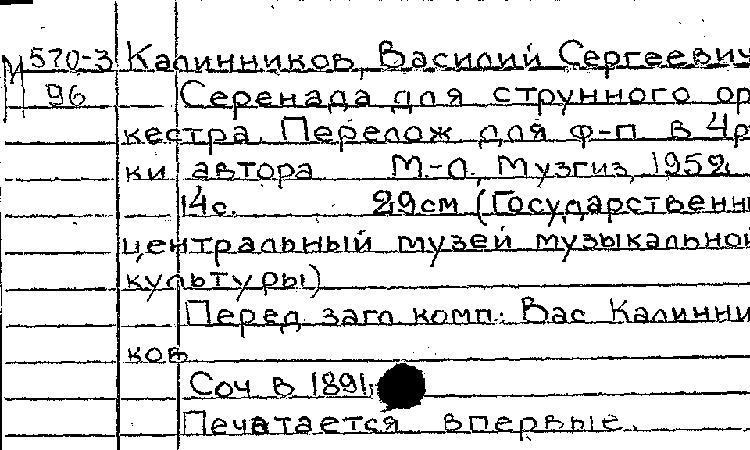 М 570-3 Калинников, Василий Сергеевич
96 Серенада для струнного ор
кестра. Перелож для ф-п в 4 р
ки автора М.-Л., Музгиз, 1952
14с. 29см (Государственн
центральный музей музыкальной
культуры)
Перед загл комп.: Вас Калинни
ков
Соч в 1891,
Печатается впервые.